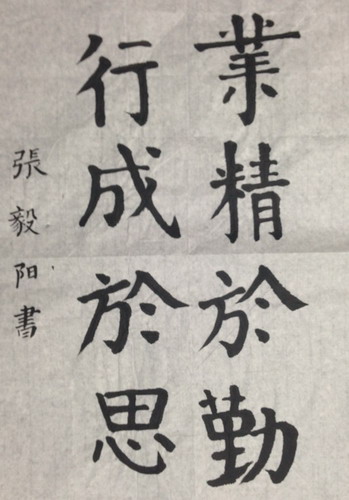 業精於勤
行成於思
張毅阳書